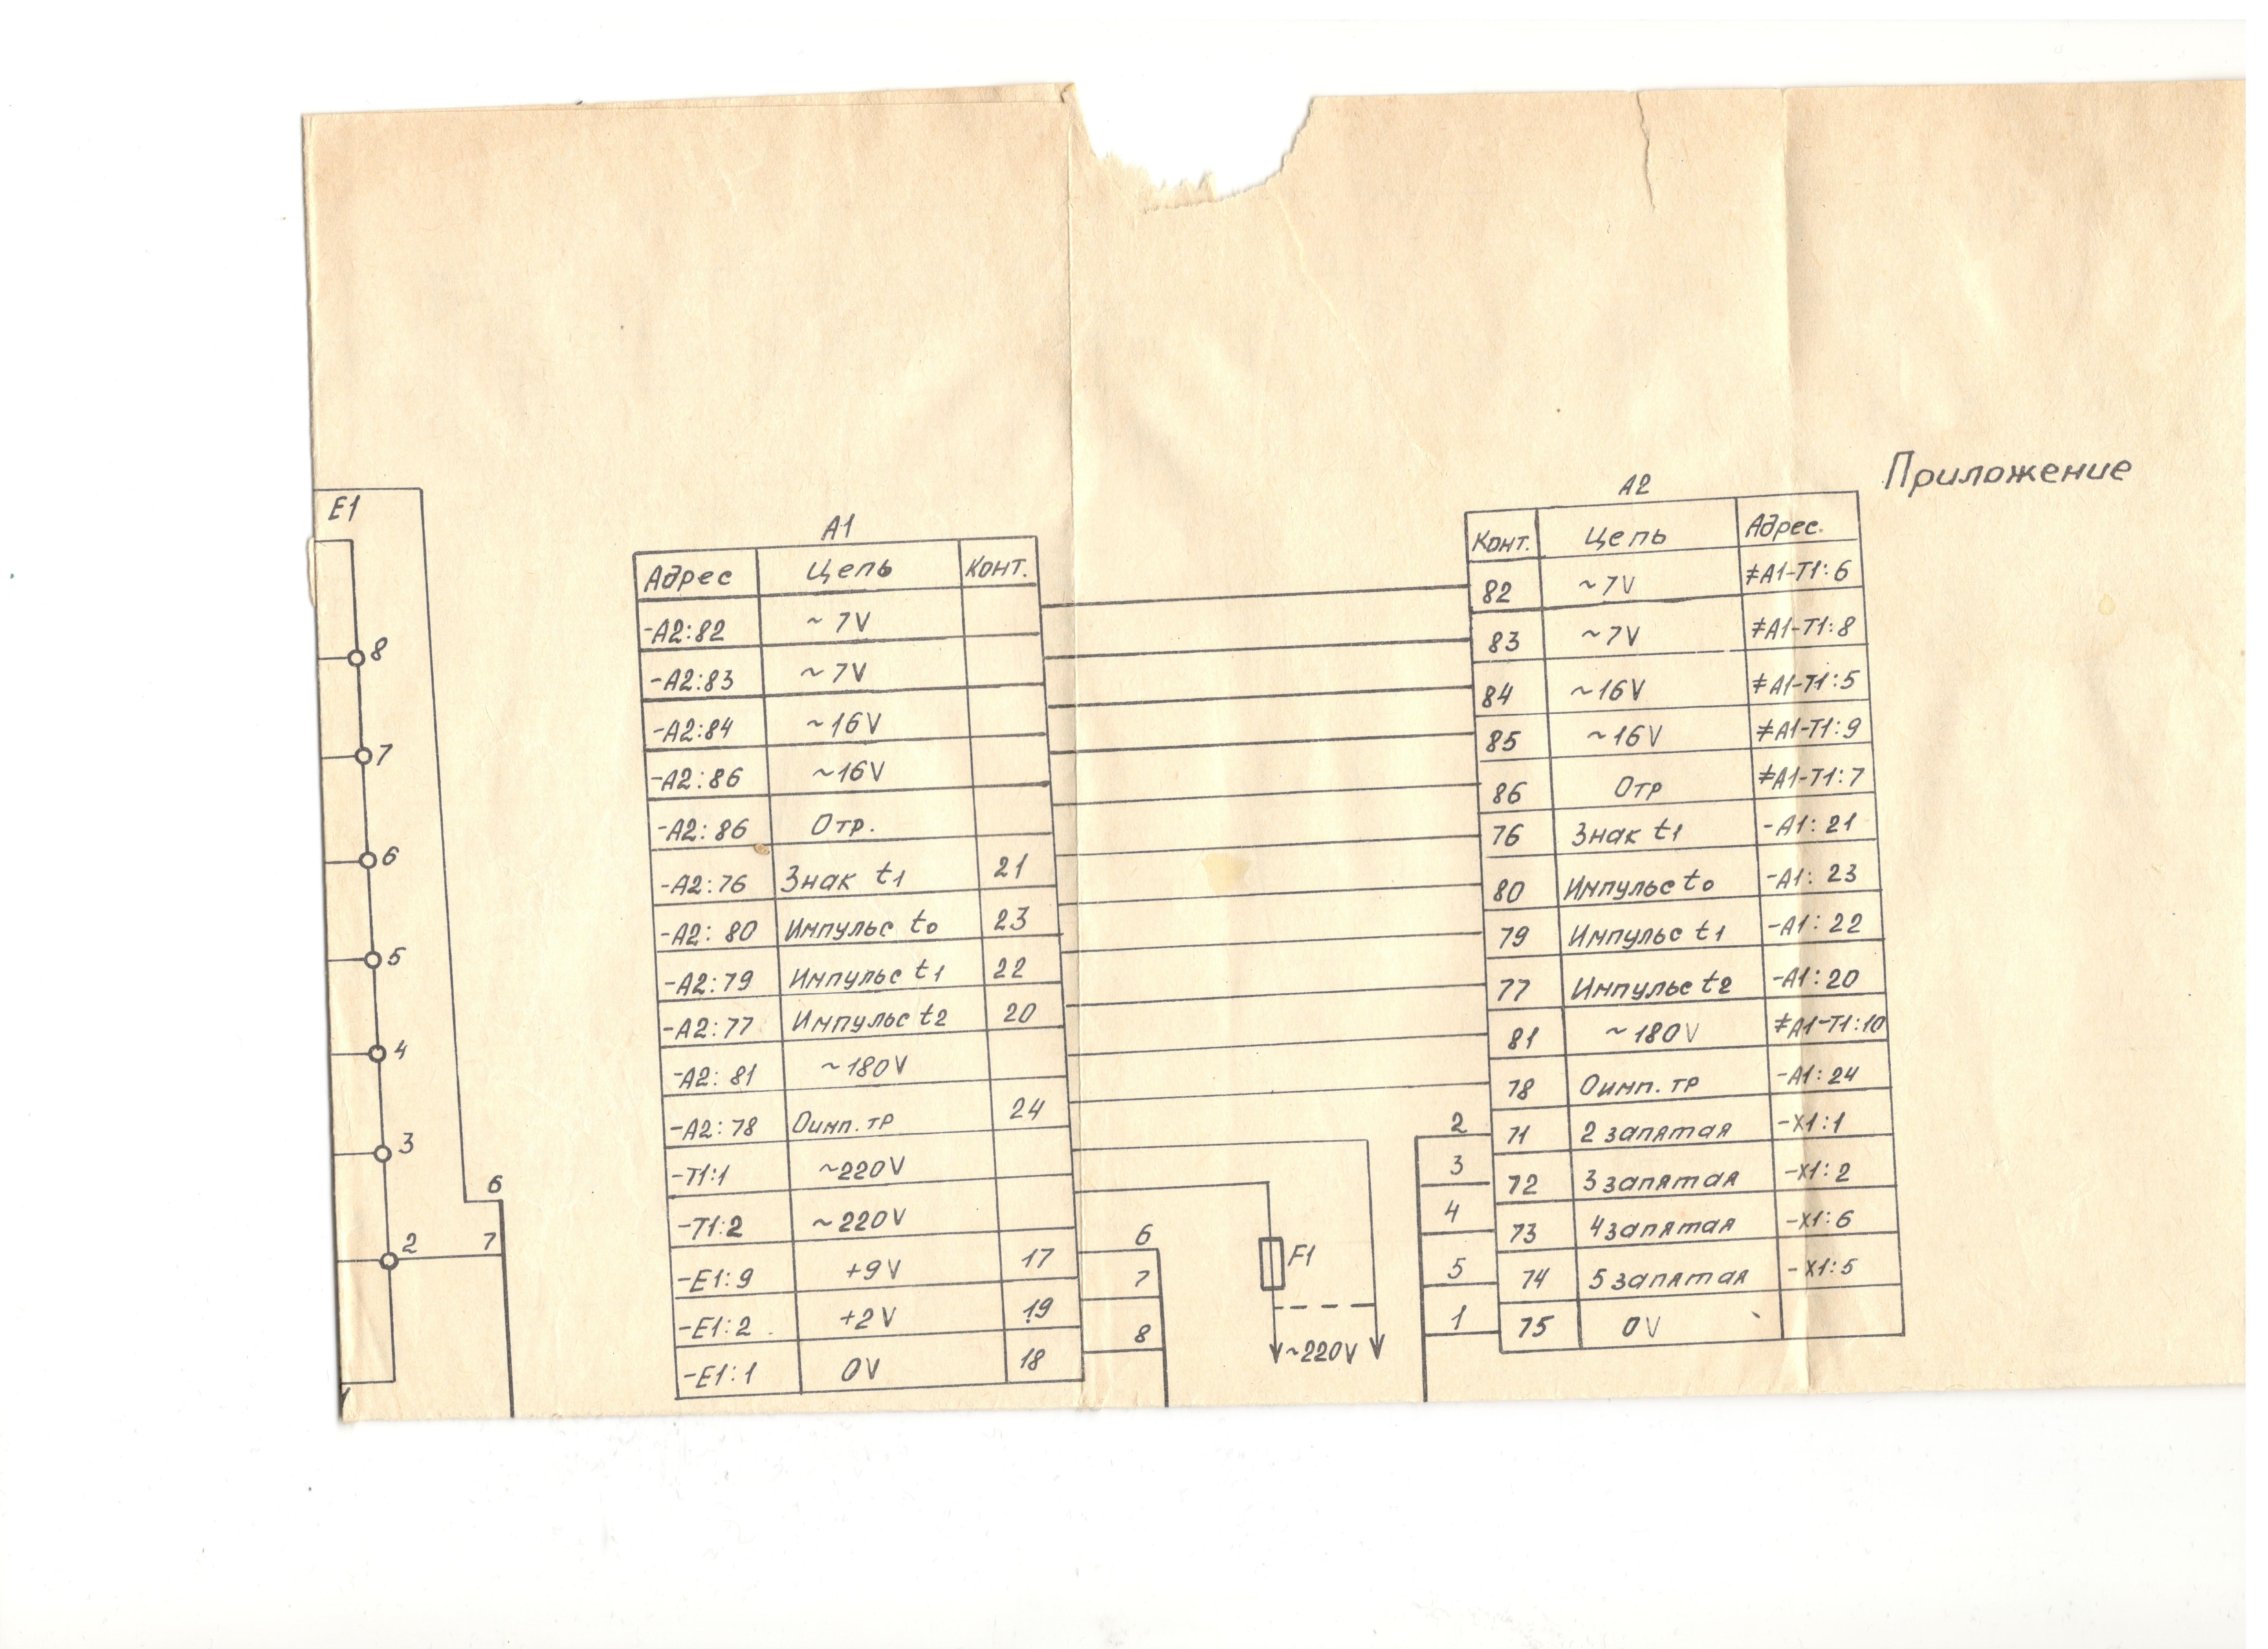 Приложение
E1
8
7
6
5
4
3
2
6
7
A1
Адрес Цепь Конт.
-A2:82 ~7V
-A2:83 ~7V
-A2:84 ~16V
-A2:86 ~16V
-A2:86 Отр.
-A2:76 Знак t1 21
-A2:80 Импульс t0 23
-A2:79 Импульс t1 22
-A2:77 Импульс t2 20
-A2:81 ~180V
-A2:78 Оимп.тр 24
-T1:1 ~220V
-T1:2 ~220V
-E1:9 +9V 17
-E1:2 +2V 19
-E1:1 0V 18
6
7
8
F1
~220V
A2
Конт. Цепь Адрес.
82 ~7V ≠A1-T1:6
83 ~7V ≠A1-T1:8
84 ~16V ≠A1-T1:5
85 ~16V ≠A1-T1:9
86 Отр ≠A1-T1:7
76 Знак t1 -A1:21
80 Импульс t0 -A1:23
79 Импульс t1 -A1:22
77 Импульс t2 -A1:20
81 ~180V ≠A1-T1:10
78 Оимп.тр -A1:24
2 71 2 запятая -X1:1
3 72 3 запятая -X1:2
4 73 4 запятая -X1:6
5 74 5 запятая -X1:5
1 75 0V